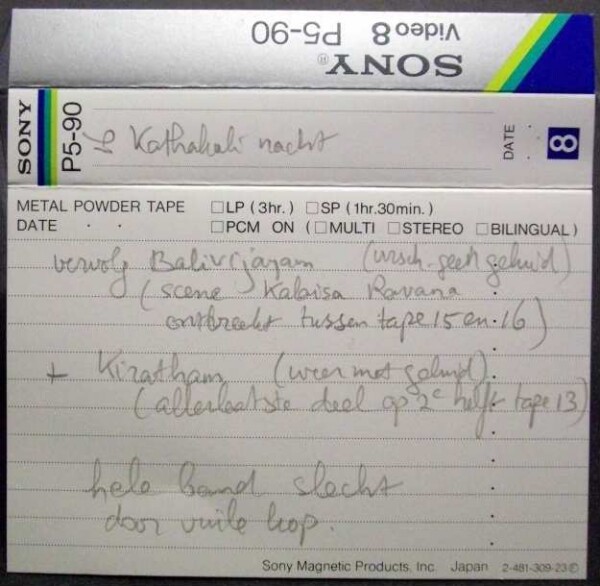 Video 8 P5-90
SONY®
SONY
P5-90
16 Kathakali nacht
DATE . .
8
METAL POWDER TAPE □LP (3hr.) □SP (1hr.30min.)
DATE . . □PCM ON (□MULTI □STEREO □BILINGUAL)
vervolg Balivijayam (wrsch. geen geluid)
(scene Kailasa Ravana
ontbreekt tussen tape 15 en 16)
+ Kiratham (weer met geluid).
(allerlaatste deel op 2e helft tape 13)
hele band slecht
door vuile kop.
Sony Magnetic Products, Inc. Japan 2-481-309-23 ©